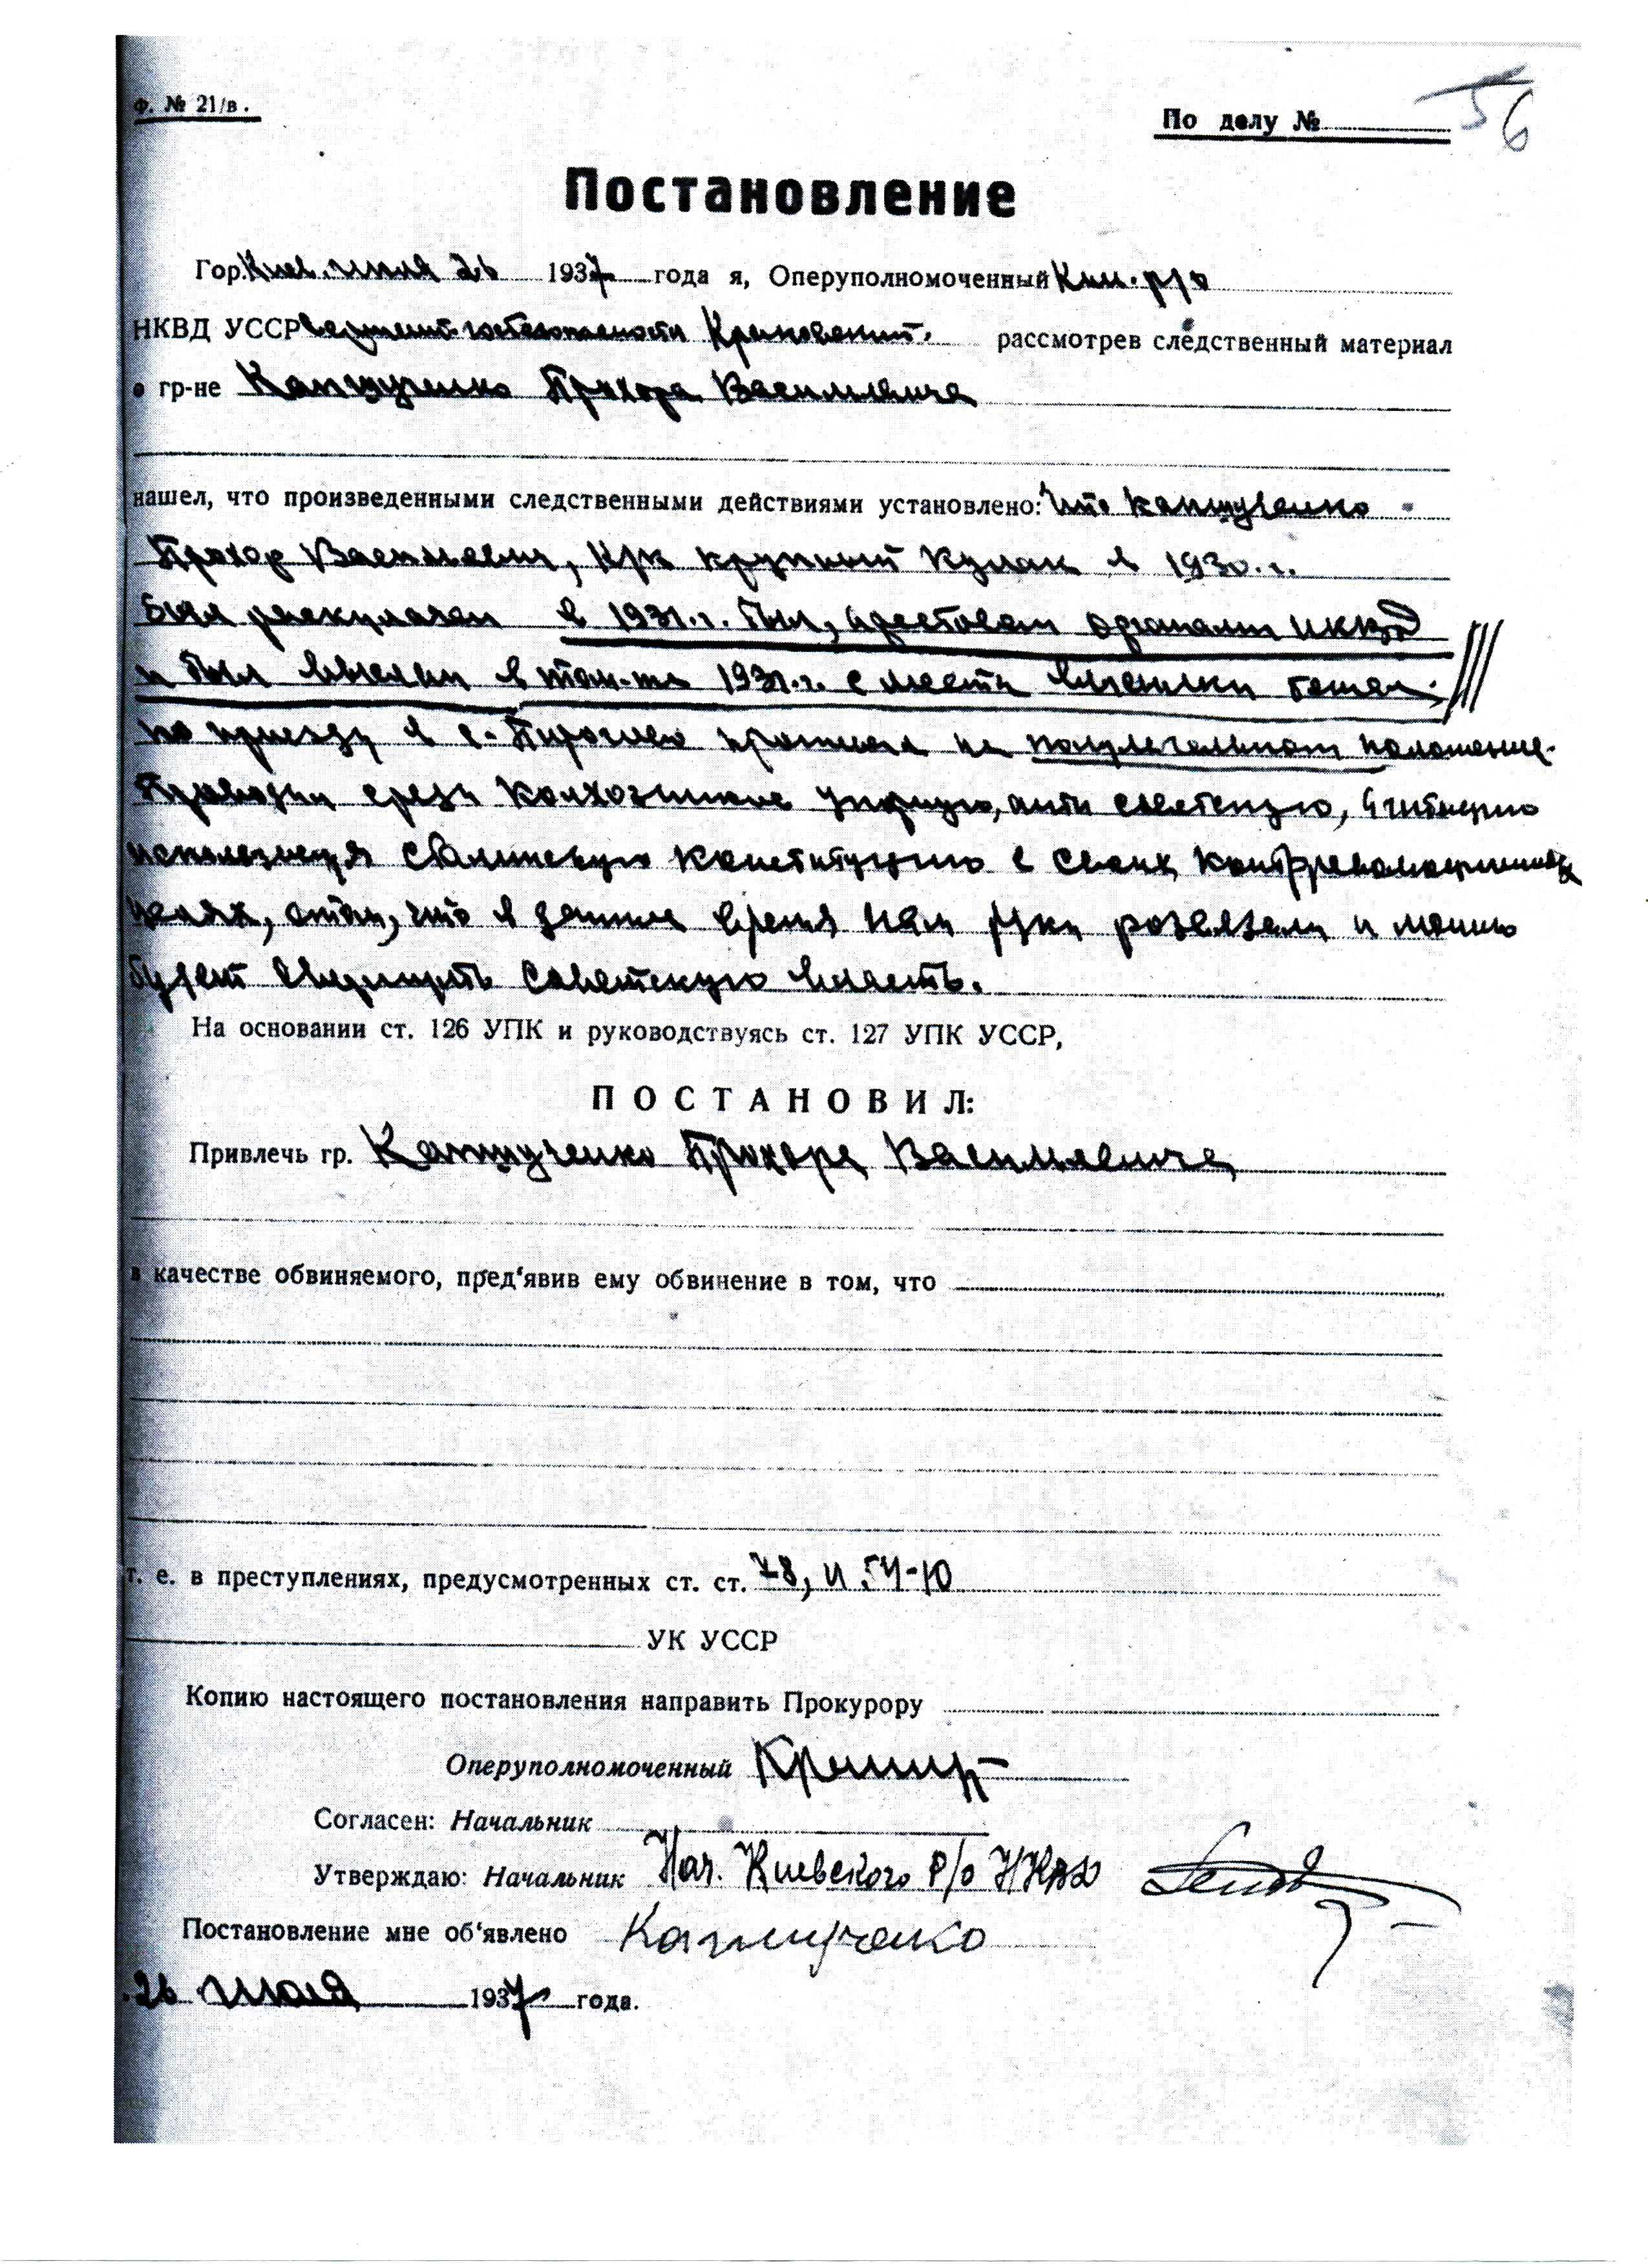 Ф. № 21/в.
По делу №
56
Постановление
Гор. Киев. июля 26 1937 года я, Оперуполномоченный Киев. р/о
НКВД УССР сержант госбезопасности рассмотрев следственный материал
о гр-не Капшученко Прохора Васильевича
нашел, что произведенными следственными действиями установлено: что Капшученко
Прохор Васильевич, крупный кулак в 1930.г.
был раскулачен в 1931.г. был, арестован органами НКВД
и был выслан в том-же 1931.г. с места высылки бежал.
по приезду в с. Пирогово проживал на полулегальном положение.
Проводил среди колхозников, анти советскую,
используя сталинскую конституцию в своих контрреволюционных
целях, о том, что в данное время нам руки розвязали и можно
будет свергнуть советскую власть.
На основании ст. 126 УПК и руководствуясь ст. 127 УПК УССР,
ПОСТАНОВИЛ:
Привлечь гр. Капшученко Прохора Васильевича
в качестве обвиняемого, пред‘явив ему обвинение в том, что
т. е. в преступлениях, предусмотренных ст. ст. 78, и 54-10
УК УССР
Копию настоящего постановления направить Прокурору
Оперуполномоченный
Согласен: Начальник
Утверждаю: Начальник Нач. Киевского Р/о НКВД
Постановление мне об‘явлено Капшученко
26 июля 1937 года.